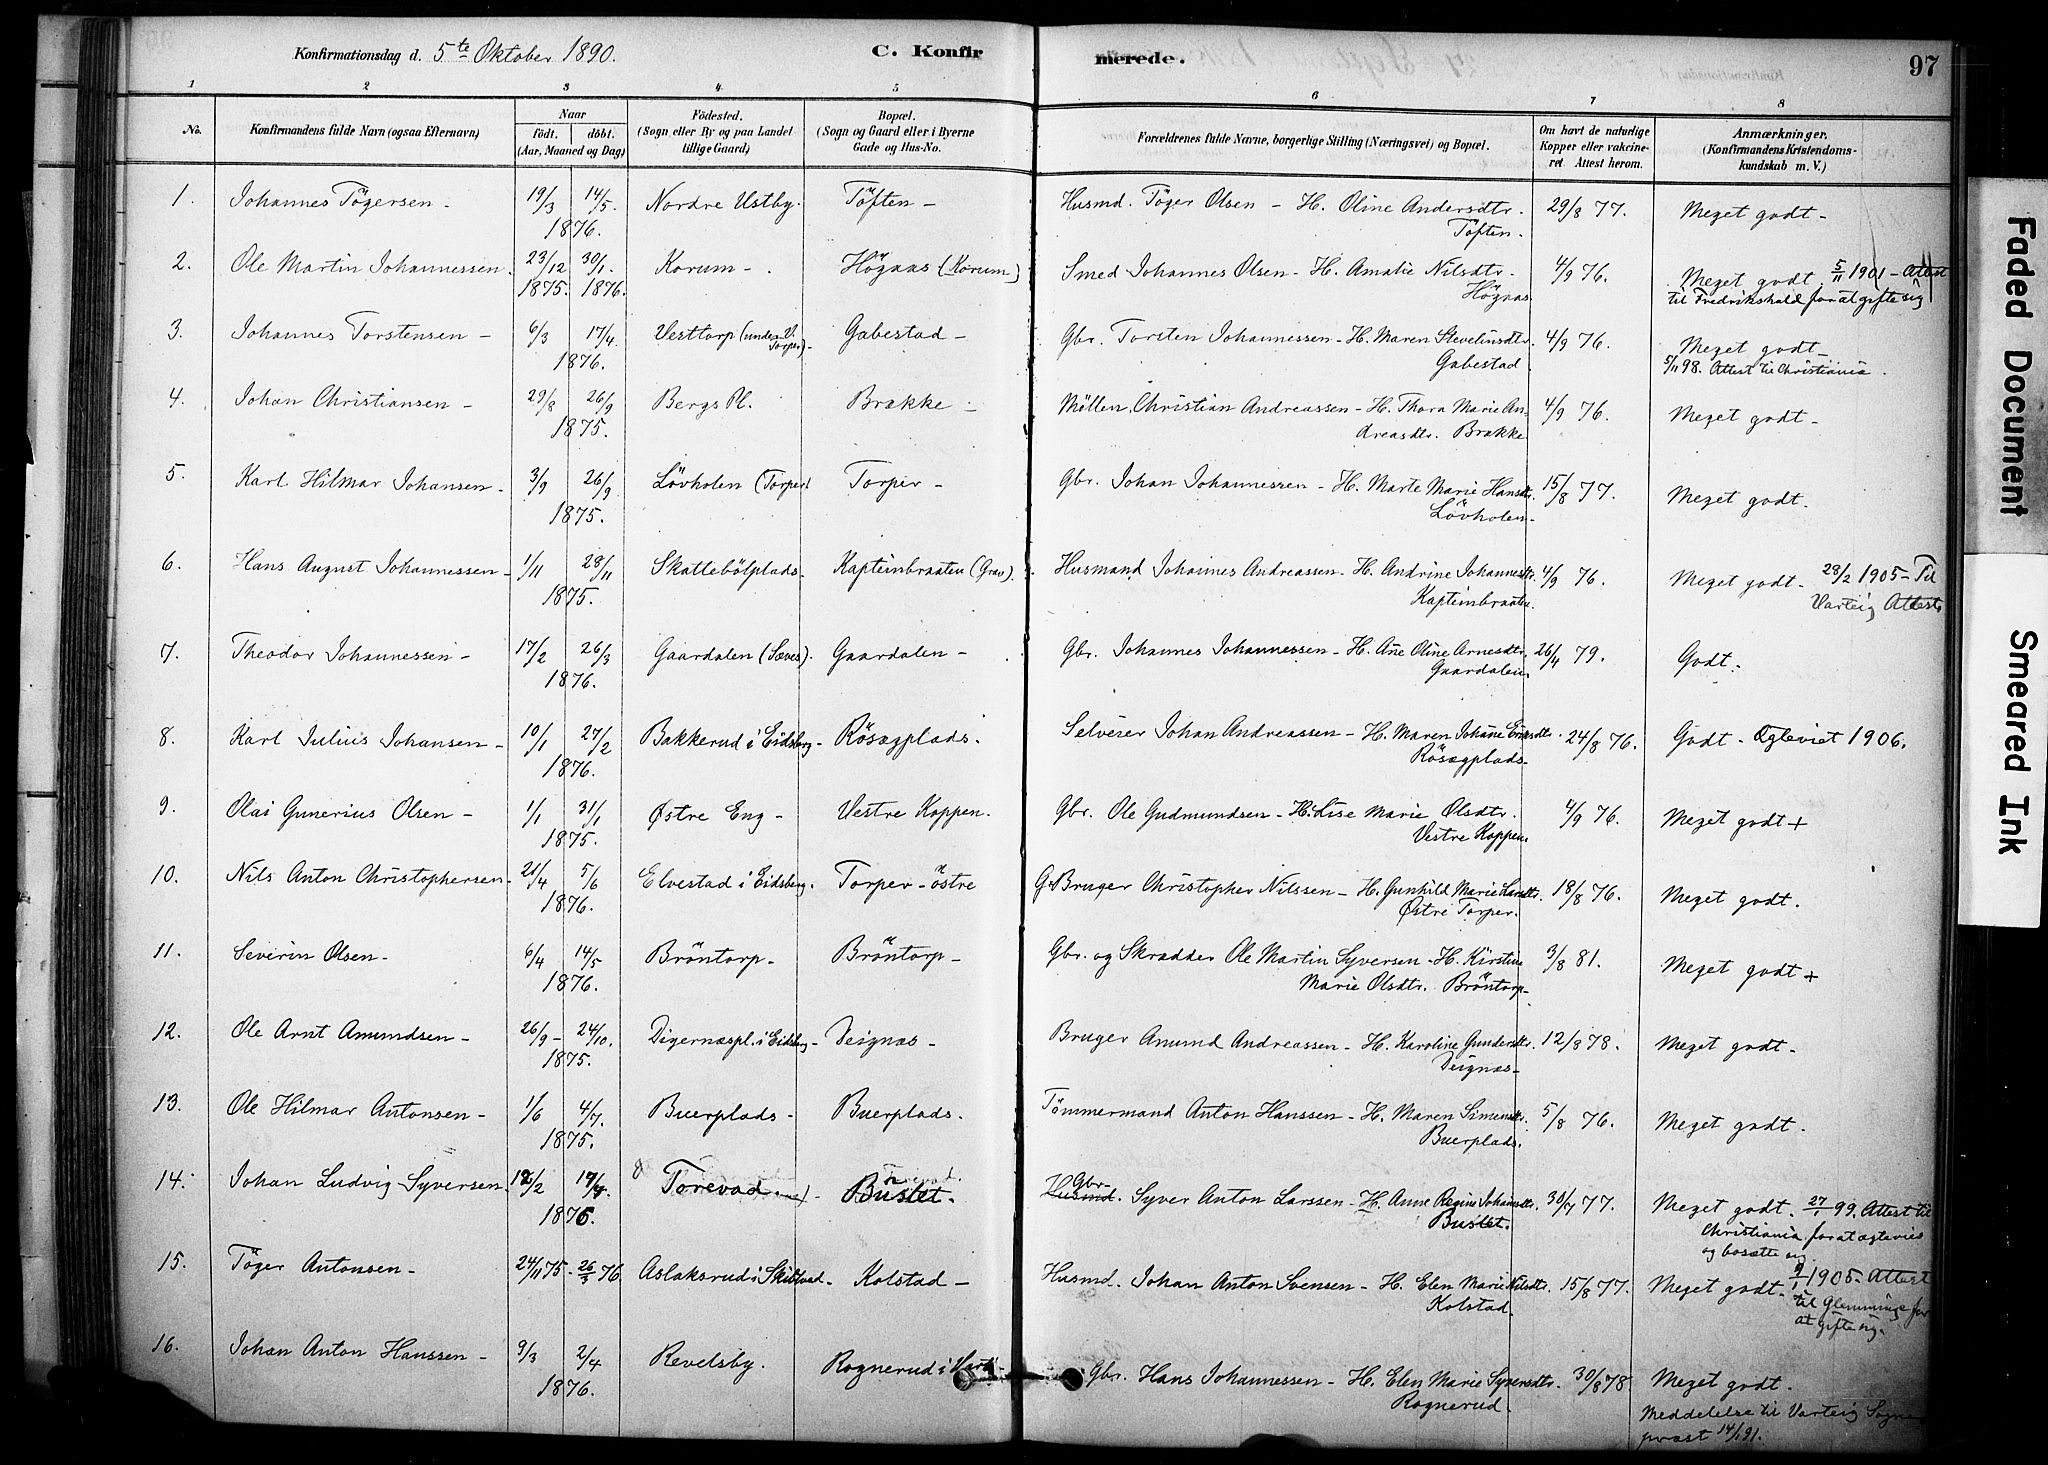 Konfirmationsdag d. 5te Oktober 1890. C. Konfir merede. 97
1 2 3 4 5 6 7 8
No. Konfirmandens fulde Navn (ogsaa Efternavn) Naar født. døbt. (Aar, Maaned og Dag) Fødested. (Sogn eller By og paa Landet tillige Gaard) Bopæl. (Sogn og Gaard eller i Byerne Gade og Hus-No. Forældrenes fulde Navne, borgerlige Stilling (Næringsvei) og Bopæl. Om havt de naturlige Kopper eller vakcineret. Attest herom. Anmærkninger. (Konfirmandens Kristendomskundskab m. V.)
1. Johannes Tögersen - 19/3 14/5 1876. Nordre Ustby. Töften - Husmd. Töger Olsen - H. Oline Andersdtr. Töften. 29/8 77. Meget godt -
2. Ole Martin Johannessen. 23/12 1875. 30/1 1876. Korum - Högnas (Korum) Smed Johannes Olsen - H. Amalie Nilsdtr - Högnas 4/9 76. Meget godt. 5/11 1901 - Attest til Fredrikshald for at gifte sig
3. Johannes Torstensen - 6/3 17/4 1876. Vesttorp (under V. Torper) - Gabestad - Gbr. Torsten Johannessen - H. Maren Stevelinsdtr. Gabestad 4/9 76. Meget godt - 5/11 98. Attest til Christiania.
4. Johan Christiansen - 29/8 26/9 1875. Bergs Pl. Brække - Möllen. Christian Andreassen - H. Thora Marie Andreasdtr. Brække 4/9 76. Meget godt -
5. Karl Hilmar Johansen - 3/9 26/9 1875. Lövholen (Torper) Torper - Gbr. Johan Johannessen - H. Marte Marie Hansdtr. Lövholen - 15/8 77. Meget godt.
6. Hans August Johannessen - 1/11 28/11 1875. Skattebölplads. Kapteinbraaten (Grav). Husmand Johannes Andreassen - H. Andrine Johannesdtr. Kapteinbraaten. 4/9 76. Meget godt - 28/2 1905 - Til Varteig Attest
7. Theodor Johannessen - 17/2 26/3 1876. Gaardalen (Sæves). Gaardalen - Gbr. Johannes Johannessen - H. Ane Oline Arnesdtr. Gaardalen 26/4 79. Godt.
8. Karl Julius Johansen - 10/1 27/2 1876. Bakkerud i Eidsberg - Rösægplads. Selveier Johan Andreassen - H. Maren Johane Eriksdtr. Rösægplads - 24/8 76. Godt - Egteviet 1906.
9. Olai Gunerius Olsen - 1/1 31/1 1875. Østre Eng - Vestre Koppen. Gbr. Ole Gudmundsen - H. Lise Marie Olsdtr. Vestre Koppen 4/9 76. Meget godt +
10. Nils Anton Christophersen - 21/4 5/6 1876. Elvestad i Eidsberg. Torper - östre G. Bruger Christopher Nilssen - H. Gunhild Marie Larsdtr. Østre Torper. 18/8 76. Meget godt.
11. Severin Olsen - 6/4 14/5 1876. Bröntorp - Bröntorp - Gbr. og Skrædder Ole Martin Syversen - H. Kirstine Marie Olsdtr. Bröntorp - 3/8 81. Meget godt +
12. Ole Arnt Amundsen - 26/9 - 24/10. 1875. Digernæspl. i Eidsberg - Deignæs - Bruger Amund Andreassen - H. Karoline Gundersdtr. Deignæs - 12/8 78. Meget godt -
13. Ole Hilmar Antonsen - 1/6 4/7 1875. Buerplads - Buerplads. Tömmermand Anton Hanssen - H. Maren Simensdtr. Buerplads. 5/8 76. Meget godt.
14. Johan Ludvig Syversen. 12/2 17/4 1876. Torevad Buslet. Gbr. Husmd. Syver Anton Larssen - H. Anne Regine Johansdtr. Buslet. 30/7 77. Meget godt. 27/1 99. Attest til Christiania for at ægtevies og bosætte sig
15. Töger Antonsen - 24/11 75 - 26/3 76. Aslaksrud i Skibtvad - Kolstad - Husmd. Johan Anton Svensen - H. Elen Marie Nilsdtr. Kolstad. 15/8 77. Meget godt - 9/1 1905 - Attest til Glemminge for at gifte sig.
16. Johan Anton Hanssen - 9/3 2/4 1876. Revelsby. Rognerud i Gbr. Hans Johannessen - H. Elen Marie Syversdtr. Rognerud. 30/8 78 Meget godt. Meddelelse til Varteig Sognepræst 14/1 91.
Faded Document
Smeared Ink